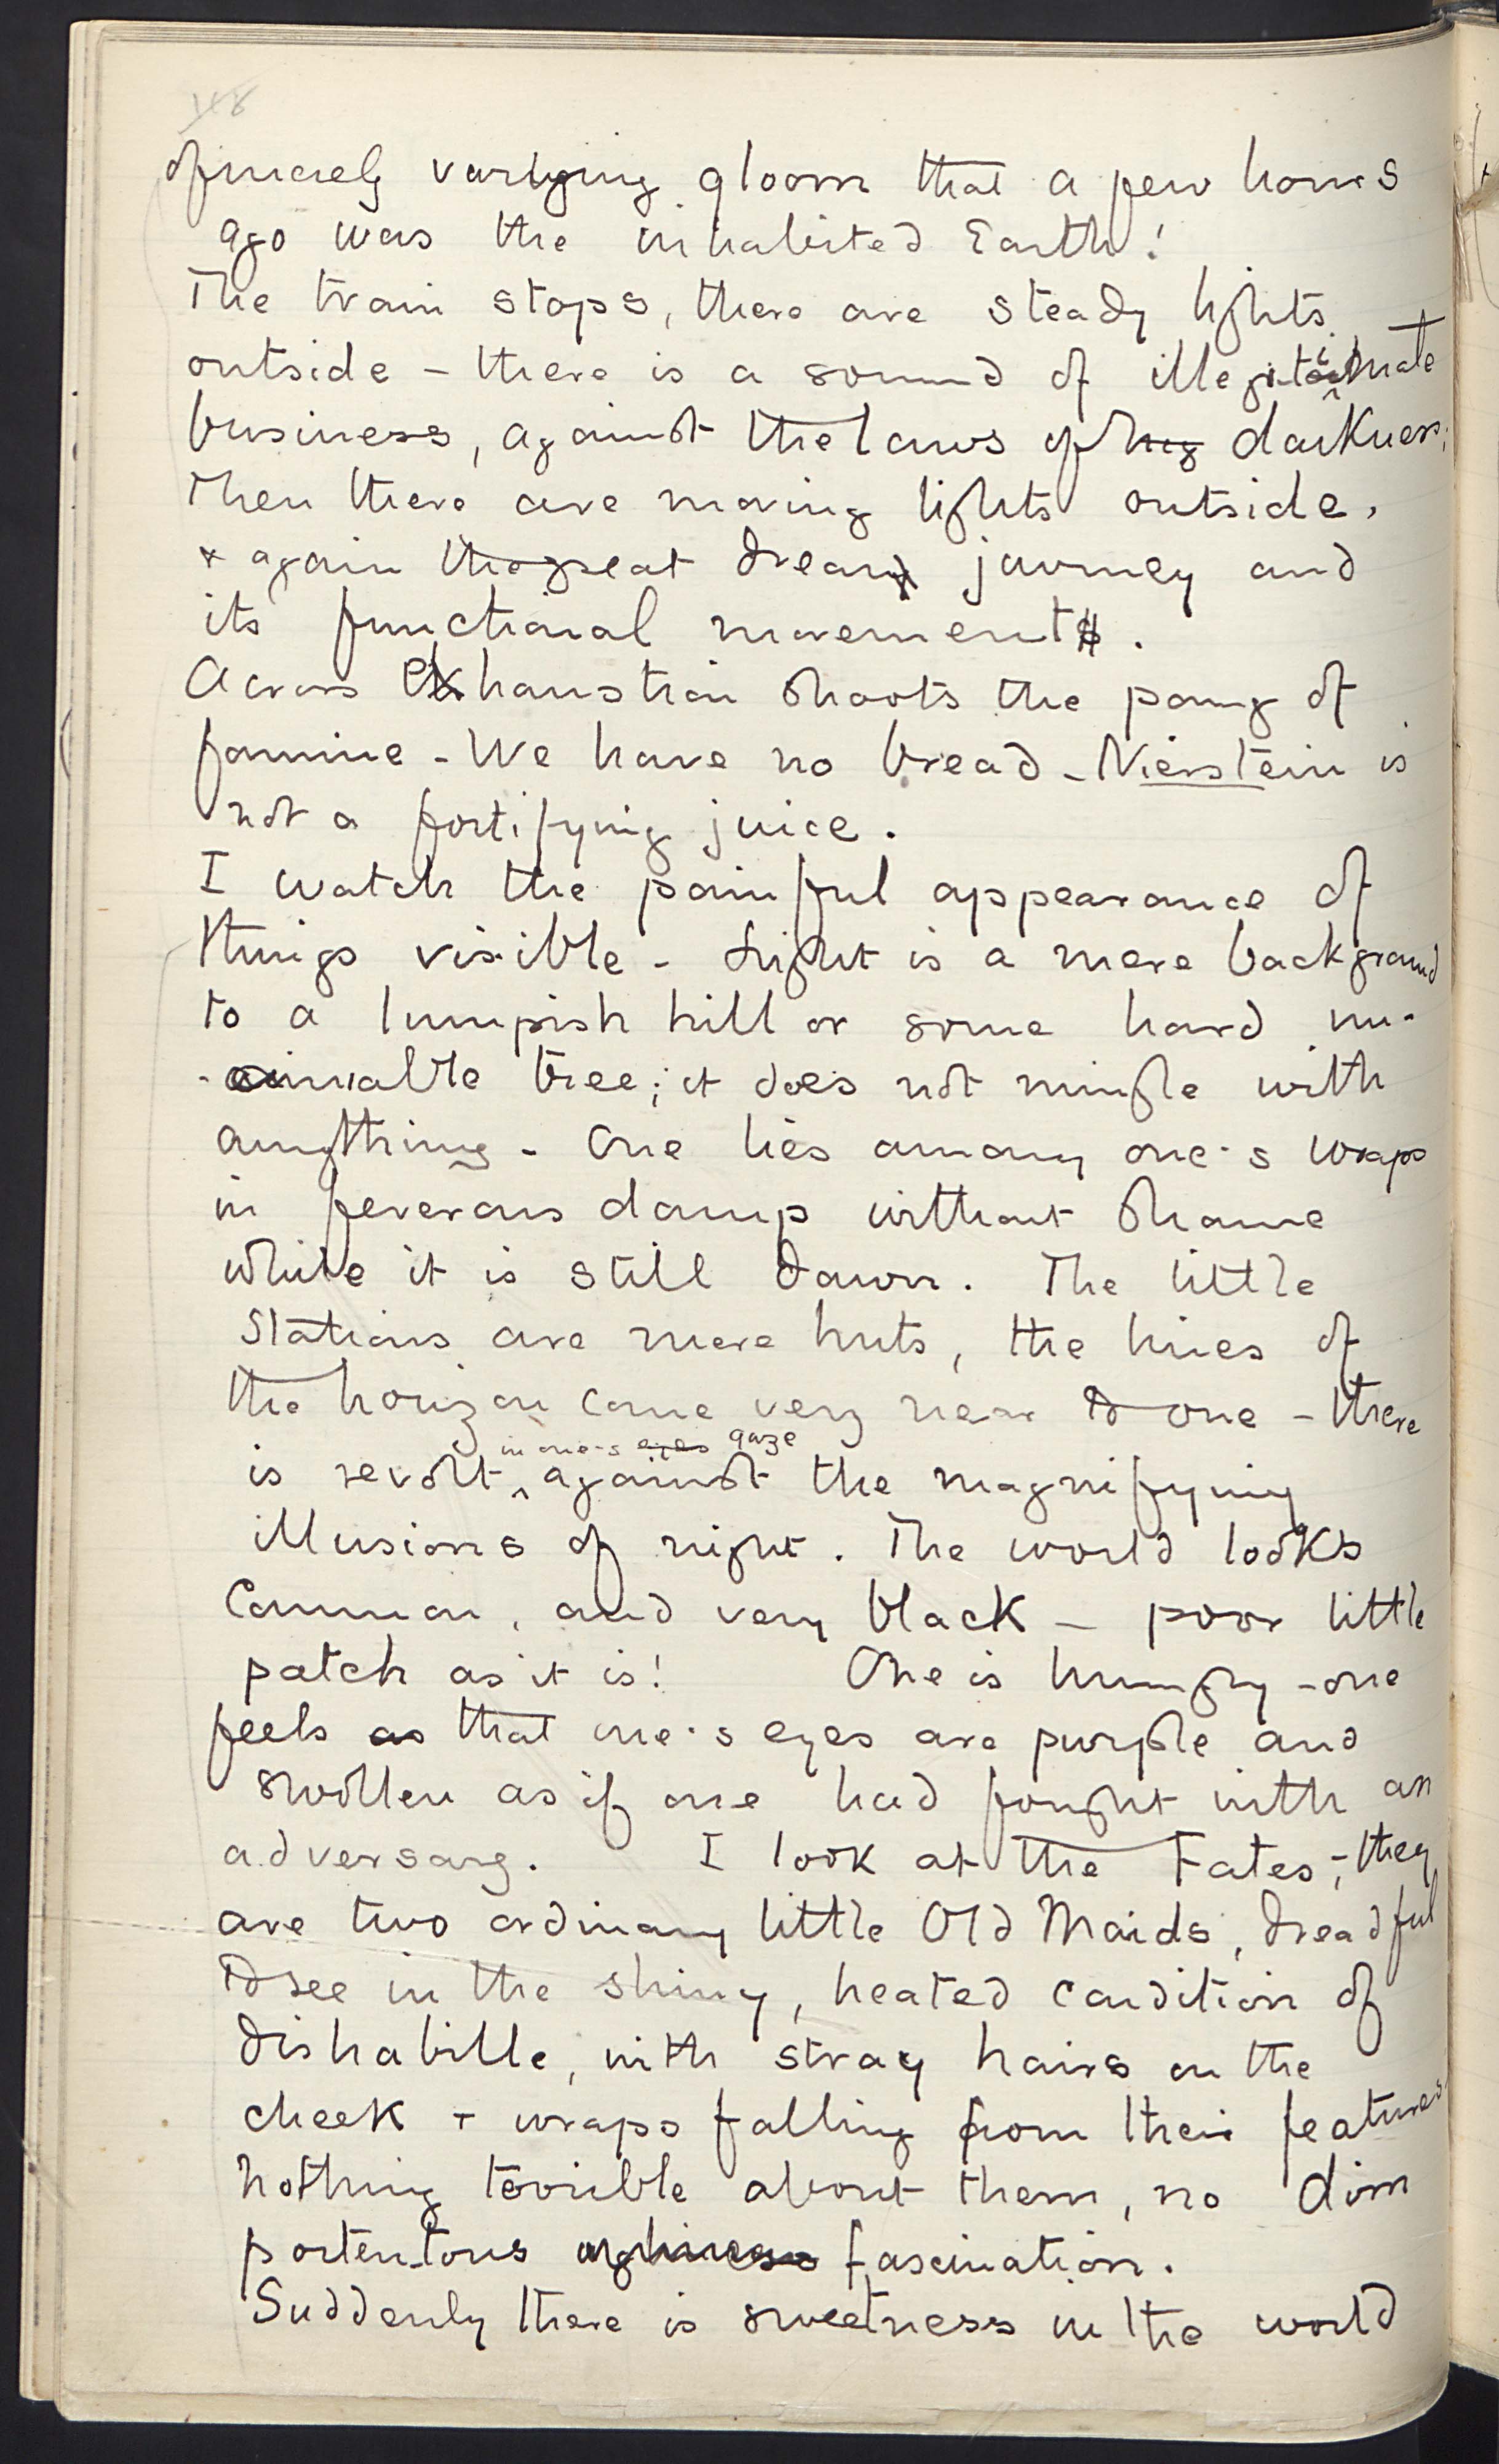 of merely varying gloom that a few hours
ago was the inhabited Earth!
The train stops, there are steady lights
outside – there is a sound of illegitimate
business, against the laws of darkness;
Then there are moving lights outside,
+ again the great dreary journey and
its functional movement.
Across Exhaustion shoots the pang of
famine – We have no bread – Nierstein is
not a fortifying juice.
I watch the painful appearance of
things visible – Light is a mere background
to a lumpish hill or some hard un-
-amiable tree; it does not mingle with
anything – One lies among one's wraps
in feverous damp without shame
while it is still dawn. The little
Stations are mere huts, the lines of
the horizon come very near to one – there
in one's eyes gaze
is revolt against the magnifying
illusions of night. The world looks
Common, and very black – poor little
patch as it is! One is hungry – one
feels as that one's eyes are purple and
swollen as if one had fought with an
adversary. I look at the Fates; – they
are two ordinary little Old Maids, dreadful
to see in the shiny, heated condition of
dishabille, with stray hairs on the
cheek + wraps falling from their features
nothing terrible about them, no dim
portentous ugliness fascination.
Suddenly there is sweetness in the world